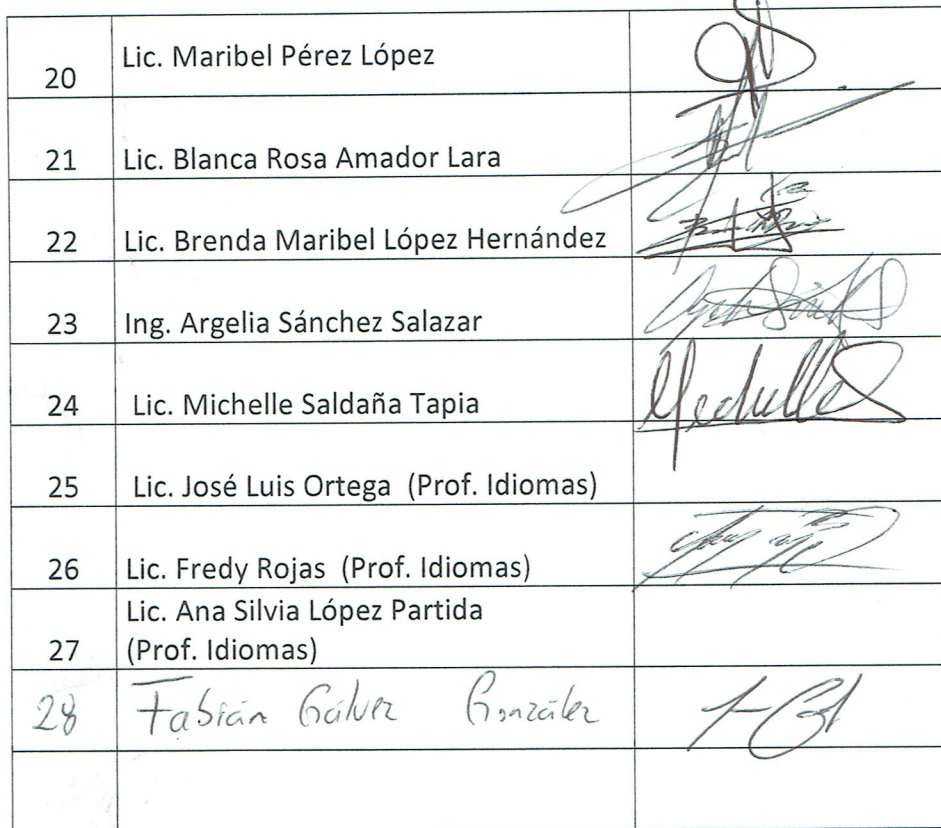 20 Lic. Maribel Pérez López
21 Lic. Blanca Rosa Amador Lara
22 Lic. Brenda Maribel López Hernández
23 Ing. Argelia Sánchez Salazar
24 Lic. Michelle Saldaña Tapia Michelle
25 Lic. José Luis Ortega (Prof. Idiomas)
26 Lic. Fredy Rojas (Prof. Idiomas)
Lic. Ana Silvia López Partida
27 (Prof. Idiomas)
28 Fabián Gálvez González